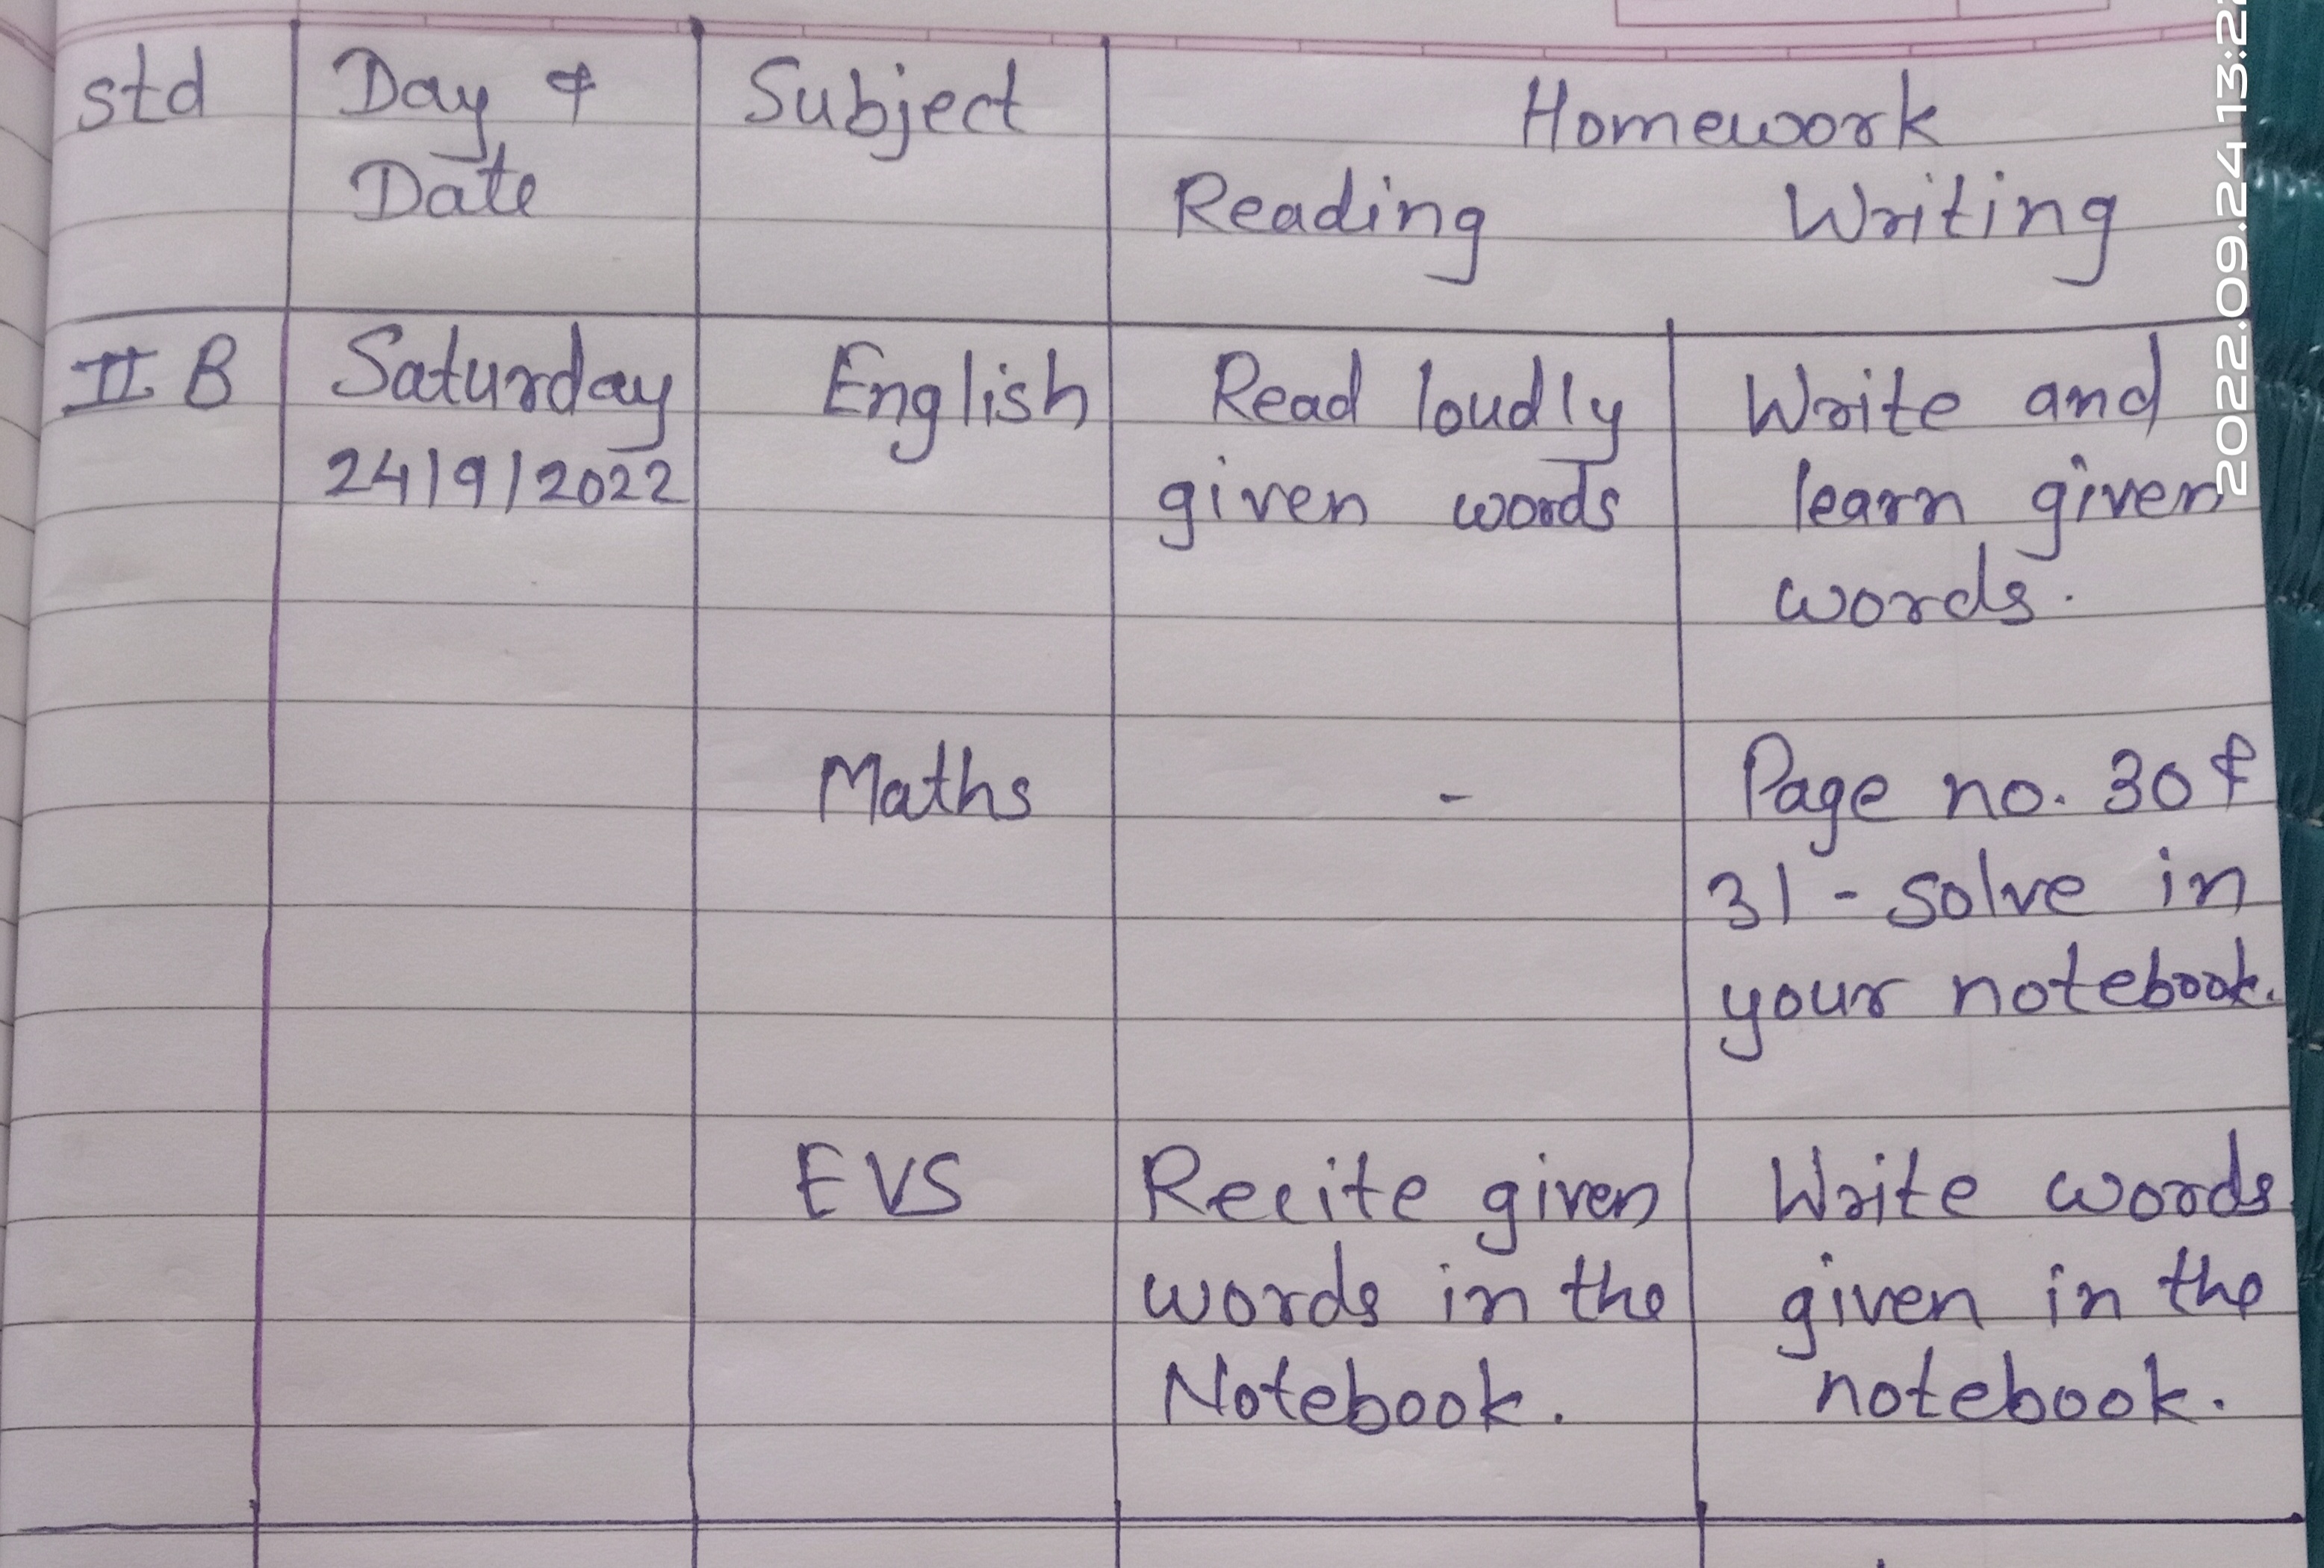 std Day & Subject Homework
Date Reading Writing
II B Saturday English Read loudly Write and
24/9/2022 given words learn given
words.
Maths - Page no. 30 &
31 - solve in
your notebook.
EVS Recite given Write words
words in the given in the
Notebook. notebook.
2022.09.24 13:2